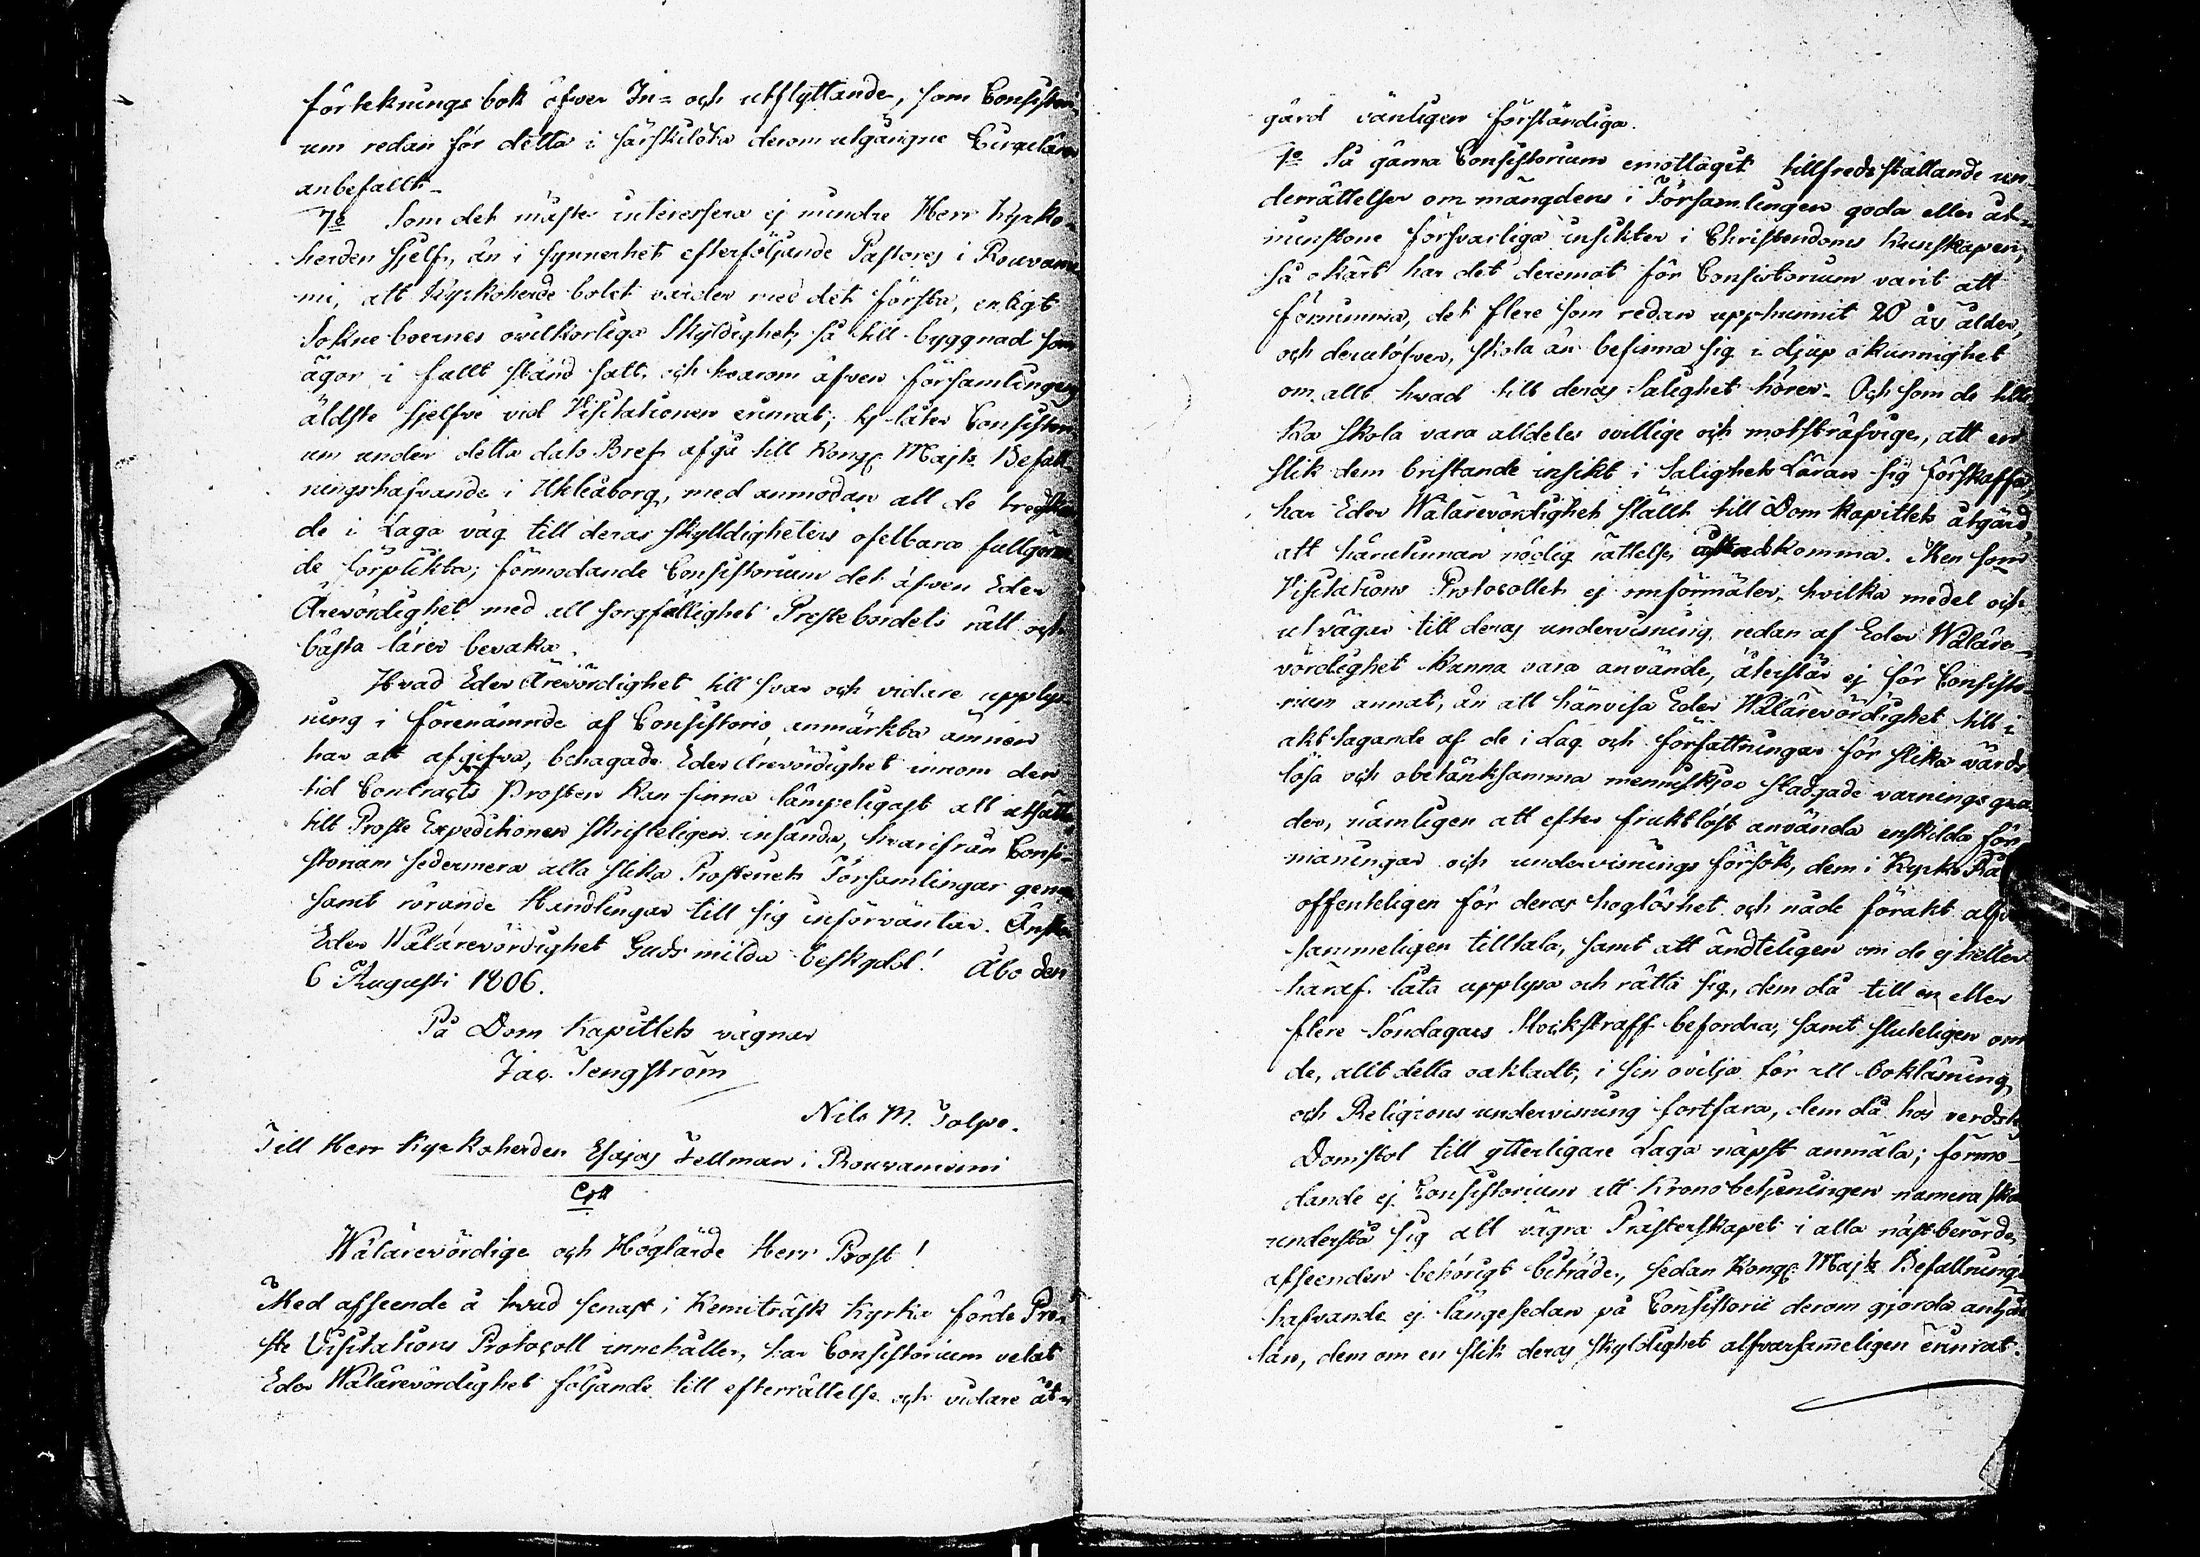 förtekningsbok öfver In= och utflyttande, som Consistori-
um redan för detta i särskilda derom utgångne Circulairer
anbefallt.
7o Som det måste interessera ej mindre Herr Kyrko-
herden sjelf, än i synnerhet efterföljande Pastores i Rouvanie-
mi, att Kyrkoherdebolet varder med det första, enligt
Sokneboernes ovilkorliga Skyldighet, så till byggnad som
ägor i fullt stånd satt, och hvarom äfven församlingens
äldste sjelfve vid Visitationen erinrat; ty låter Consistori-
um under detta dato Bref afgå till Kongl. Majts Befall-
ningshafvande i Uhleåborg, med anmodan att de tredskan-
de i Laga väg till deras skylldigheters ofelbara fullgöran-
de förplikta; förmodande Consistorium det äfven Eder
Ärevördighet med all sorgfällighet Prestebordets rätt och
bästa lärer bevaka.
Hvad Eder Ärevördighet till svar och vidare upplys-
ning i förenämnde af Consistorio anmärkta ämnen
har att afgifva, behagade Eder Ärevördighet innom den
tid Contracts Prosten kan finna lämpeligast att utsätta
till Proste Expeditionen skrifteligen insända, hvarifrån Consi-
storium sedermera alla slika Prosteriets Församlingar gemen-
samt rörande Handlingar till sig införväntar. Önskar
Eder Wälärevördighet Guds milda beskydd! Åbo den
6 Augusti 1806.
På Dom Kapitlets vägnar
Jac. Tengström
Nils M. Tolpo.
Till Herr Kyrkoherden Esajas Fellman i Rouvaniemi
Wälärevördige och Höglärde Herr Prost!
Med afseende å hvad senast i Kemiträsk Kyrka förde Pro-
ste Visitations Protocoll innehåller, har Consistorium velat
Eder Wälärevördighet följande till efterrättelse och vidare åt-
gärd vänligen förständiga.
1o Så gärna Consistorium emottagit tillfredsställande un-
derrättelser om mängdens i Församlingen goda eller åt-
minstone försvarliga insikter i Christendoms Kunskapen,
så okärt har det deremot för Consistorium varit att
förnimma, det flere som redan upphunnit 20 års ålder,
och derutöfver, skola än befinna sig i djup okunnighet
om allt hvad till deras Salighet hörer. Och som de tilli-
ka skola vara alldeles ovillige och motsträfvige, att en
slik dem bristande insikt i Salighets Läran sig förskaffa,
har Eder Wälärevördighet ställt till Dom Kapitlets åtgärd
att härutinnan nödig rättelse åstadkomma. Men som
Visitations Protocollet ej omförmäler, hvilka medel och
utvägar till deras undervisning redan af Eder Wäläre-
vördighet kunna vara använde, återstår ej för Consisto-
rium annat, än att hänvisa Eder Wälärevördighet till i-
akttagande af de i Lag och författningar för slika vårds-
lösa och obetänksamma menniskjor stadgade varningsgra-
der, nämligen att efter fruktlöst använda enskilda för-
maningar och undervisnings försök, dem i Kyrko Råd
offenteligen för deras hoglöshet och nåde förakt alfvar-
sammeligen tilltala, samt att ändteligen om de ej heller
häraf låta upplysa och rätta sig, dem då till en eller
flere Söndagars Stockstraff befordra, samt sluteligen om
de, allt detta oaktadt, i sin ovilja för all bokläsning
och Religions undervisning fortfara, dem då hos verdslig
Domstol till ytterligare Laga näpst anmäla; förmo-
dande ej Consistorium att Kronobetjeningen numera skola
understå sig att vägra Prästerskapet i alla nästberörde
afseenden behörigt biträde, sedan Kongl. Majts Befallnings-
hafvande ej längesedan på Consistorii derom gjorda anhål-
lan, dem om en slik deras skyldighet alfvarsammeligen erinrat.